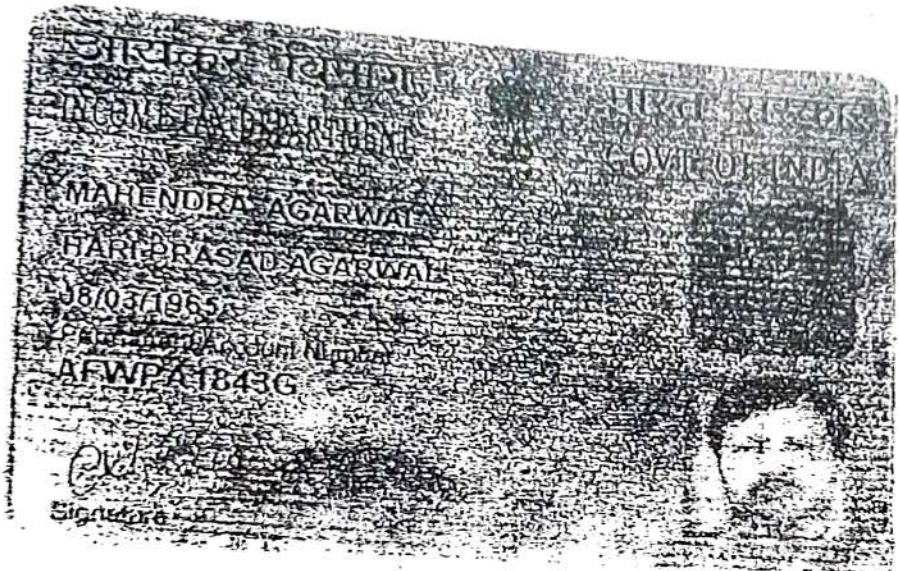 आयकर विभाग
भारत सरकार
INCOME TAX DEPARTMENT
GOVT. OF INDIA
MAHENDRA AGARWAL
HARI PRASAD AGARWAL
08/03/1965
Permanent Account Number
AFWPA1843G
Signature